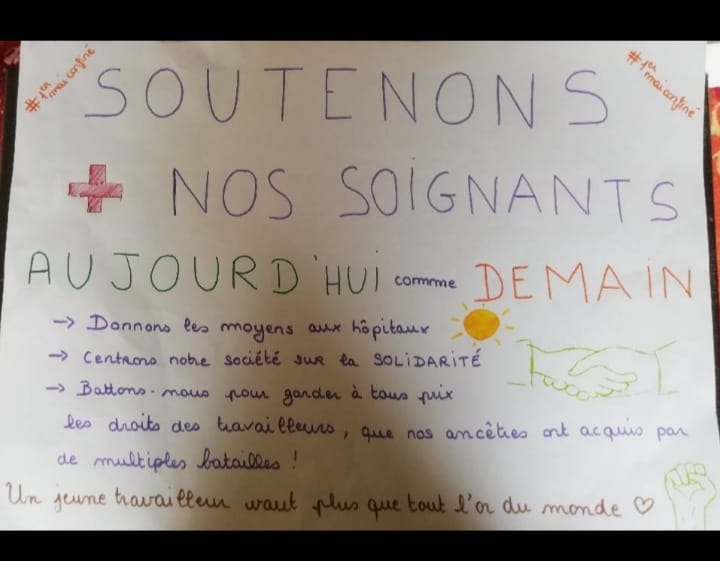 #1er mai confiné
#1er mai confiné
SOUTENONS
NOS SOIGNANTS
AUJOURD'HUI comme DEMAIN
→ Donnons les moyens aux hôpitaux
→ Centrons notre société sur la SOLIDARITÉ
→ Battons-nous pour garder à tous prix
les droits des travailleurs, que nos ancêtres ont acquis par
de multiples batailles !
Un jeune travailleur vaut plus que tout l'or du monde ♡